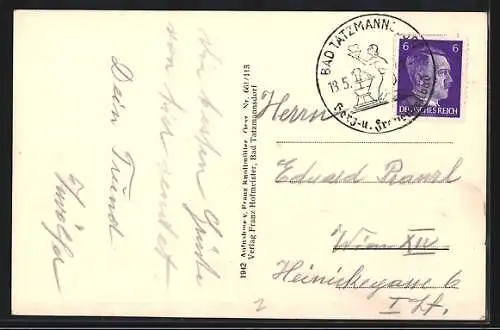 Die besten Grüße
von hier sendet
Dein Freund
1942 Aufnahme v. Franz Knollmüller Gesr. Nr. 661/113
Verlag Franz Hofmeister, Bad Tatzmannsdorf
BAD TATZMANNSDORF
Herz-u. Frauenheilbad
6 6
DEUTSCHES REICH
Herrn
Eduard
Wien XII
Heinickegasse 6